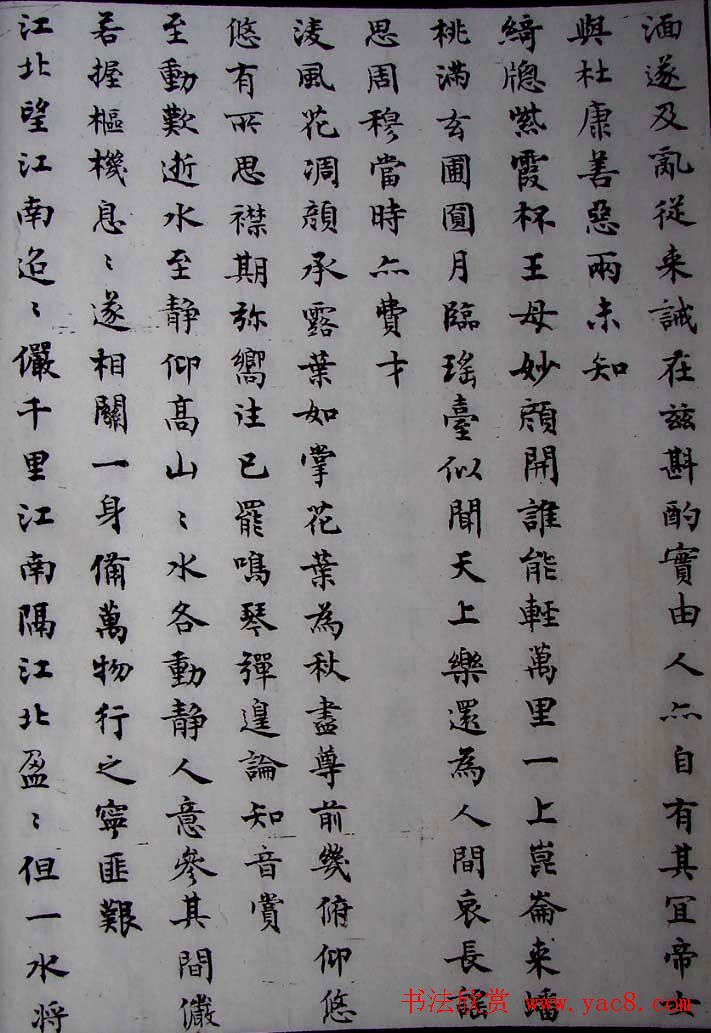 湎遂及亂從来誡在兹斟酌實由人亦自有其冝帝女
與杜康善惡兩未知
綺牕紫霞杯王母妙顔開誰能輕萬里一上崑崙来墦
桃滿玄圃圓月臨瑤臺似聞天上樂還為人間哀長謡
思周穆當時亦費才
淩風花凋顔承露葉如掌花葉為秋盡尊前幾俯仰悠
悠有所思襟期弥嚮注已罷鳴琴彈遑論知音賞
至動歎逝水至静仰高山〻水各動静人意參其間儼
若握樞機息〻遂相關一身備萬物行之寧匪艱
江北望江南迢〻儼千里江南隔江北盈〻但一水将
书法欣赏 www.yac8.com